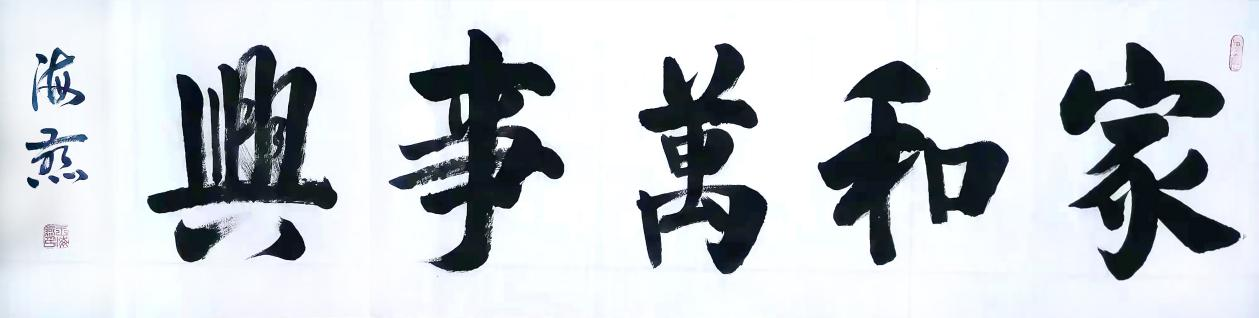 家和萬事興
海燕